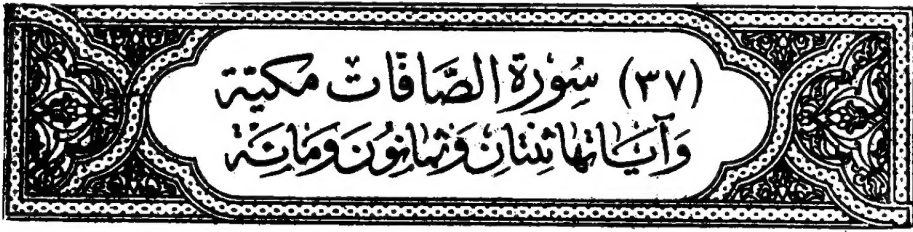 (٣٧) سُورَة الصَّافَاتْ مكيّة
وَآيَاتهَا ثِنتَانِ وَثمَانُونَ وَمَائَة